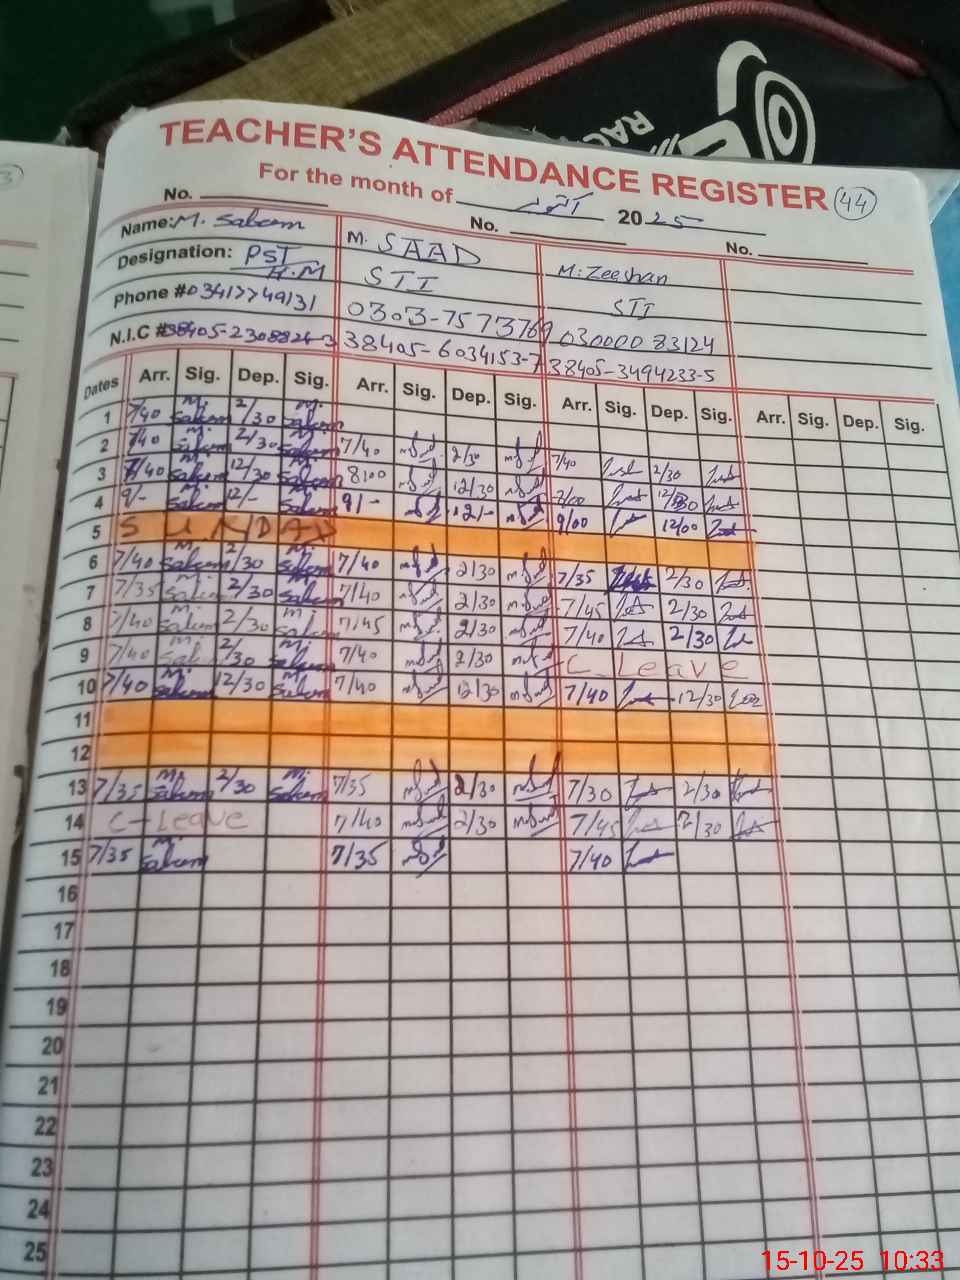 3
RAC
TEACHER'S ATTENDANCE REGISTER 44
For the month of اکتوبر 2025
No. No. No.
Name: M. Saleem M. SAAD M: Zeeshan
Designation: PST H.M STI STI
Phone # 03417749131 0303-7573769 030000 83124
N.I.C # 38405-2308824-3 38405-6034153-7 38405-3494233-5
Dates Arr. Sig. Dep. Sig. Arr. Sig. Dep. Sig. Arr. Sig. Dep. Sig. Arr. Sig. Dep. Sig.
1 7/40 M. Saleem 2/30 M. Saleem
2 7/40 M. Saleem 2/30 M. Saleem 7/40 2/30 7/40 2/30
3 7/40 M. Saleem 12/30 M. Saleem 8/00 12/30 7/00 12/30
4 9/- Saleem 12/- Saleem 9/- 12/- 9/00 12/00
5 SUNDAY
6 7/40 M. Saleem 2/30 M. Saleem 7/40 2/30 7/35 2/30
7 7/35 Saleem 2/30 Saleem 7/40 2/30 7/45 2/30
8 7/40 M. Saleem 2/30 M. Saleem 7/45 2/30 7/40 2/30
9 7/40 2/30 M. Saleem 7/40 2/30 C_Leave
10 7/40 M. Saleem 12/30 M. Saleem 7/40 12/30 7/40 12/30
11
12
13 7/35 M. Saleem 2/30 M. Saleem 7/35 2/30 7/30 2/30
14 C-Leave 7/40 2/30 7/45 2/30
15 7/35 M. Saleem 7/35 7/40
16
17
18
19
20
21
22
23
24
25
15-10-25 10:33